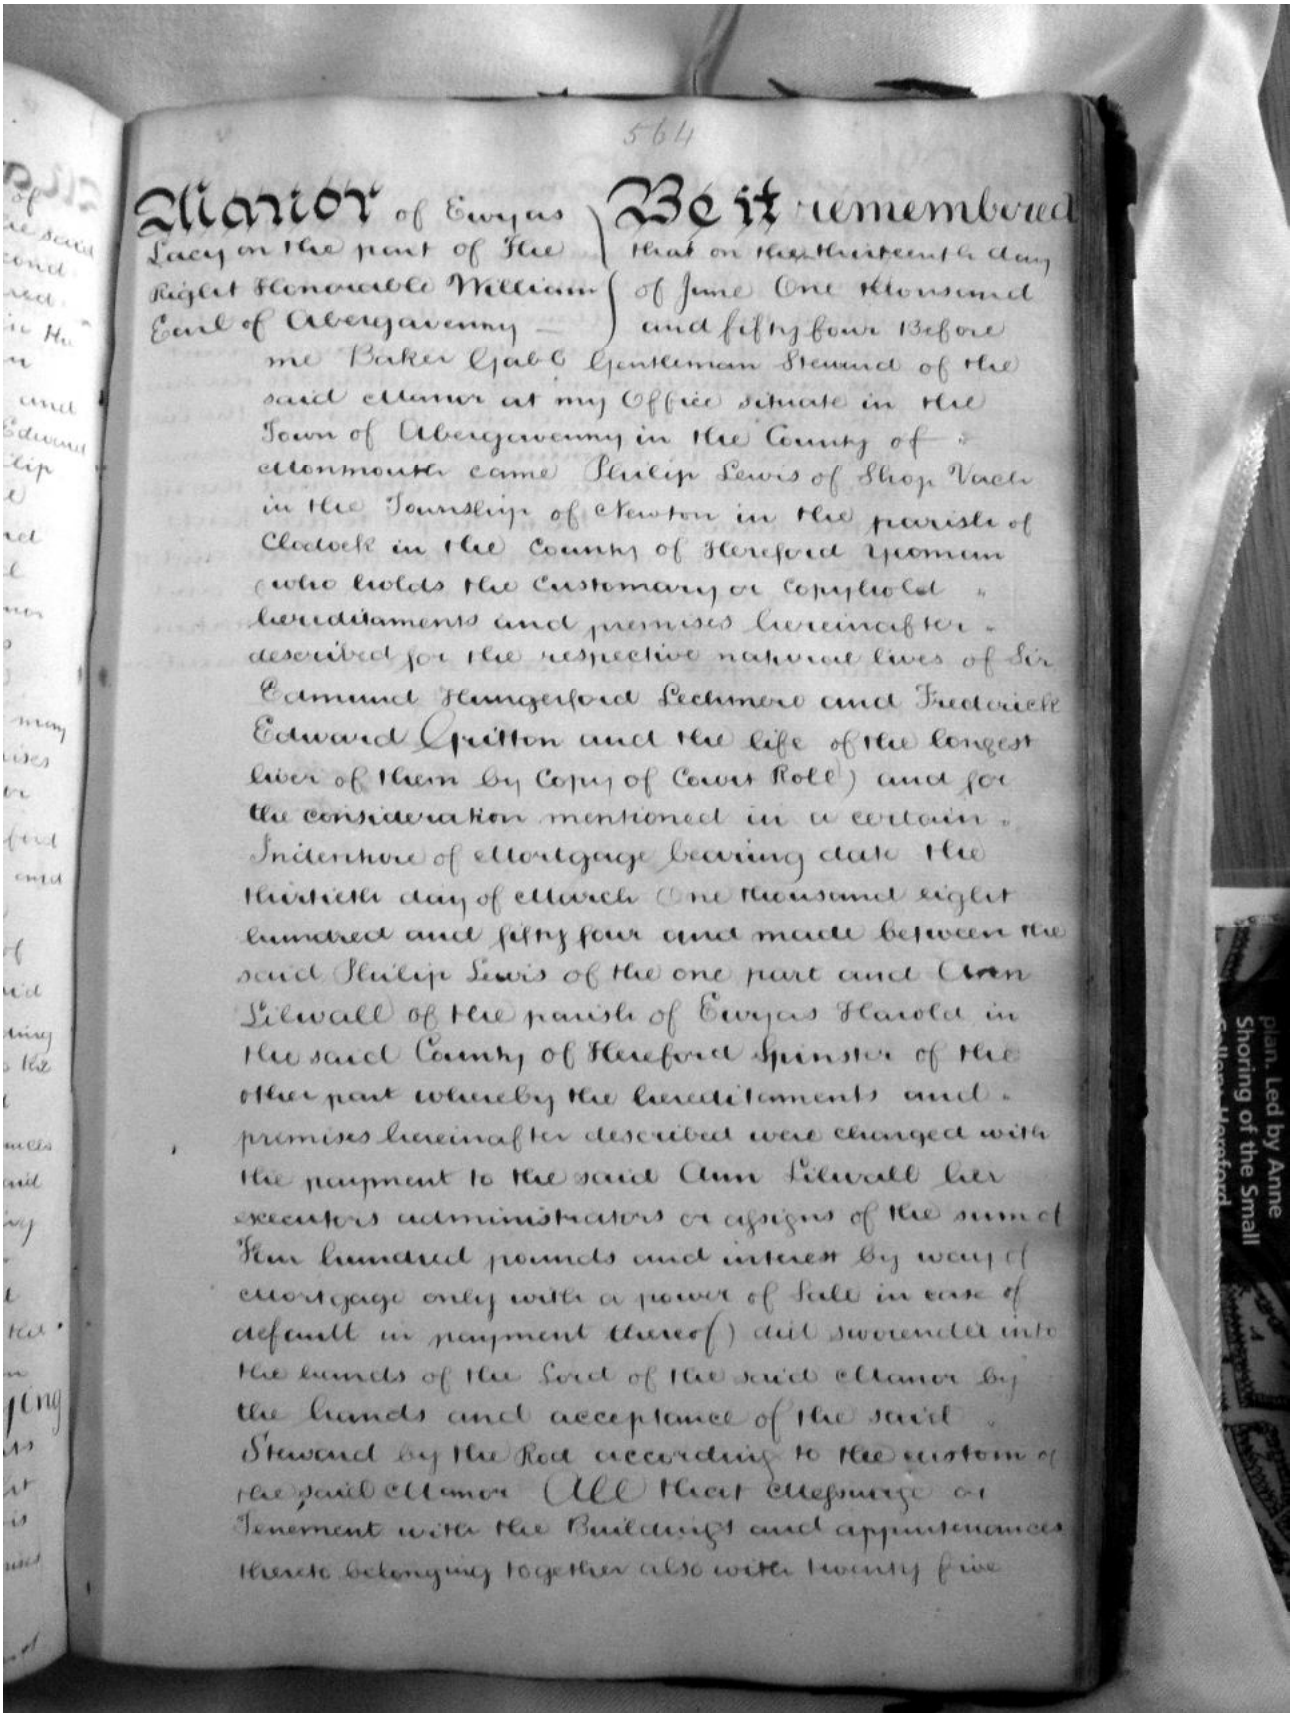 564
Manor of Ewyas
Lacy on the part of The
Right Honorable William
Earl of Abergavenny —
Be it remembered
that on the thirteenth day
of June One thousand
and fifty four Before
me Baker Gabb Gentleman Steward of the
said Manor at my Office situate in the
Town of Abergavenny in the County of "
Monmouth came Philip Lewis of Shop Vach
in the Township of Newton in the parish of
Clodock in the County of Hereford Yeoman
(who holds the Customary or Copyhold "
hereditaments and premises hereinafter "
described for the respective natural lives of Sir
Edmund Hungerford Lechmere and Frederick
Edward Gritton and the life of the longest
liver of them by Copy of Court Roll) and for
the consideration mentioned in a certain "
Indenture of Mortgage bearing date the
thirtieth day of March One thousand eight
hundred and fifty four and made between the
said Philip Lewis of the one part and Ann
Lilwall of the parish of Ewyas Harold in
the said County of Hereford Spinster of the
other part whereby the hereditaments and "
premises hereinafter described were charged with
the payment to the said Ann Lilwall her
executors administrators or assigns of the sum of
hundred pounds and interest by way of
Mortgage only with a power of Sale in case of
default in payment thereof) did surrender into
the hands of the Lord of the said Manor by
the hands and acceptance of the said "
Steward by the Rod according to the custom of
the said Manor All that Messuage or
Tenement with the Buildings and appurtenances
thereto belonging together also with twenty five
plan. Led by Anne
Shoring of the Small
Hereford